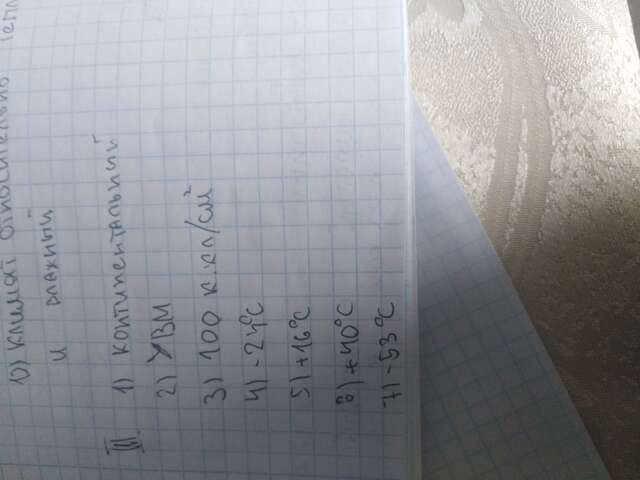 10) Климат относительно тепл
и влажный
III. 1) континентальний
2) УВМ
3) 100 к.кл/см²
4) -24°C
5) +16°C
6) +40°C
7) -53°C